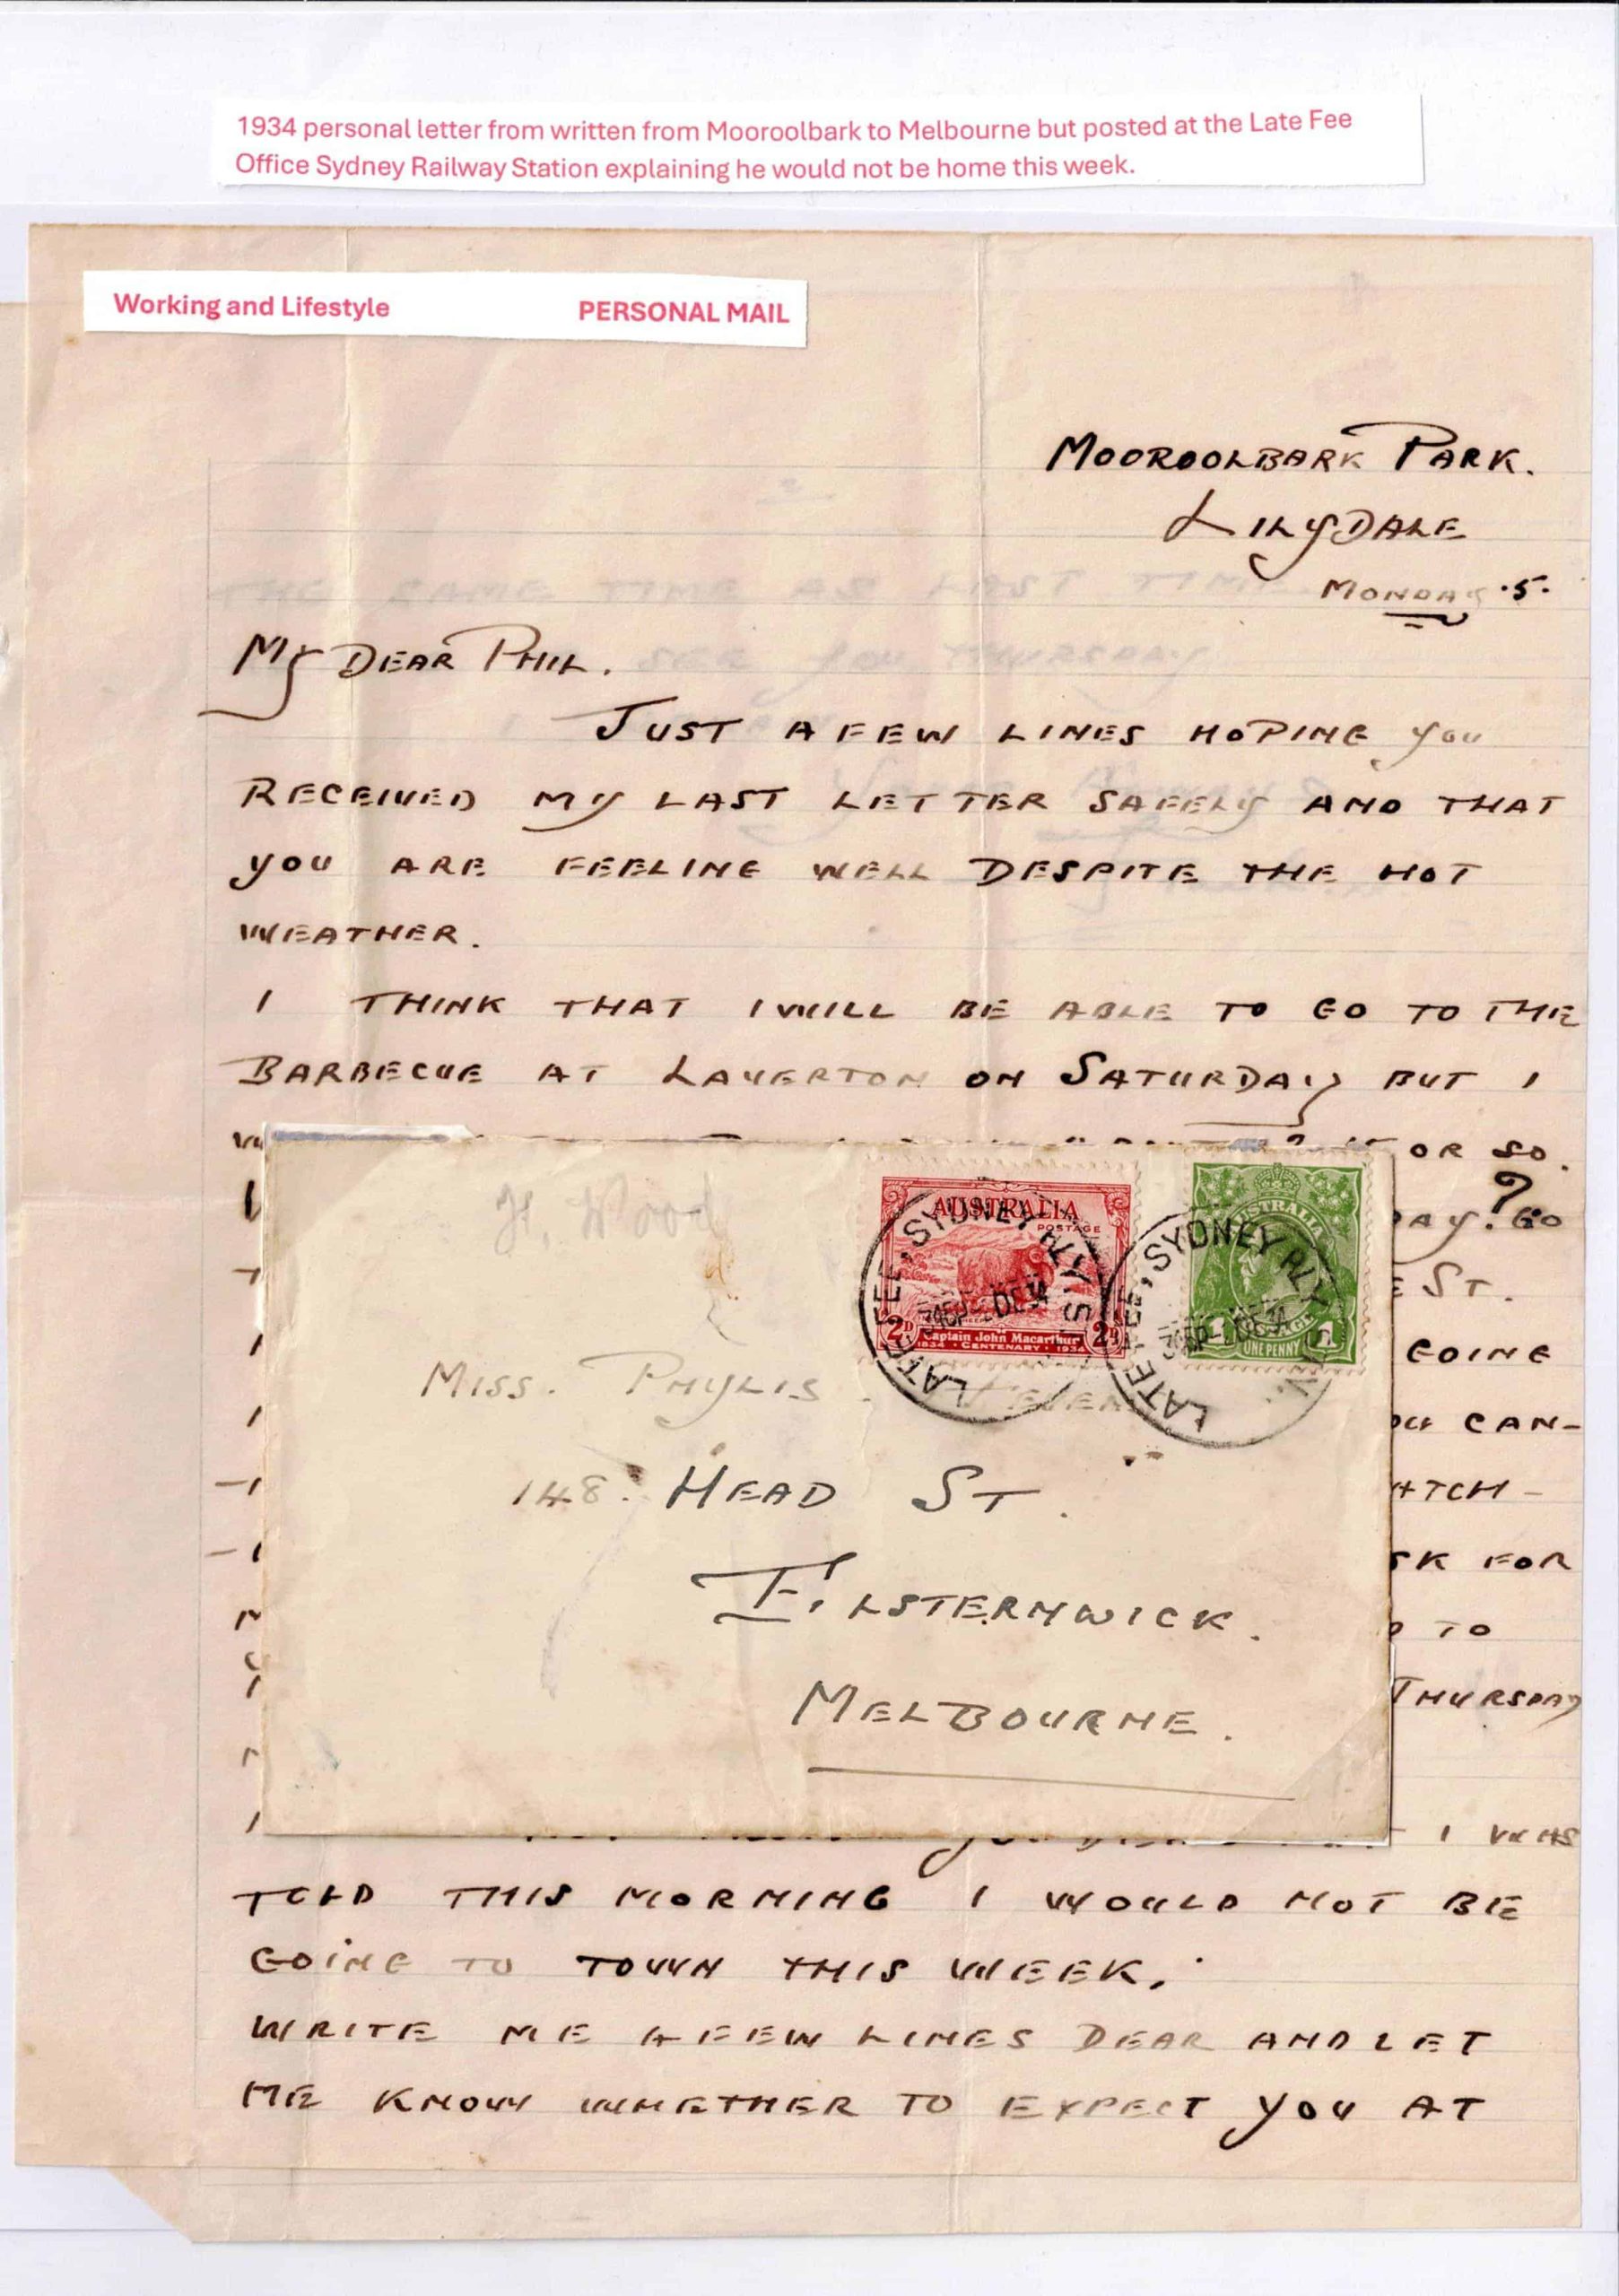 1934 personal letter from written from Mooroolbark to Melbourne but posted at the Late Fee
Office Sydney Railway Station explaining he would not be home this week.
Working and Lifestyle PERSONAL MAIL
MOOROOLBARK PARK.
LILYDALE
MONDAY .5.
MY DEAR PHIL.
JUST A FEW LINES HOPING YOU
RECEIVED MY LAST LETTER SAFELY AND THAT
YOU ARE FEELING WELL DESPITE THE HOT
WEATHER.
I THINK THAT I WILL BE ABLE TO GO TO THE
BARBECUE AT LAVERTON ON SATURDAY BUT I
OR SO.
GO
ST.
GOING
CAN-
FOR
TO
THURSDAY
I WAS
TOLD THIS MORNING I WOULD NOT BE
GOING TO TOWN THIS WEEK.
WRITE ME A FEW LINES DEAR AND LET
ME KNOW WHETHER TO EXPECT YOU AT
H. Wood
AUSTRALIA
POSTAGE
2D 2D
Captain John Macarthur
1834 · CENTENARY · 1934
AUSTRALIA
ONE PENNY
LATE FEE, SYDNEY RLY. S
LATE FEE, SYDNEY RLY
MISS. PHYLIS
148. HEAD ST.
ELSTERNWICK.
MELBOURNE.
THE SAME TIME AS LAST TIME
SEE YOU THURSDAY